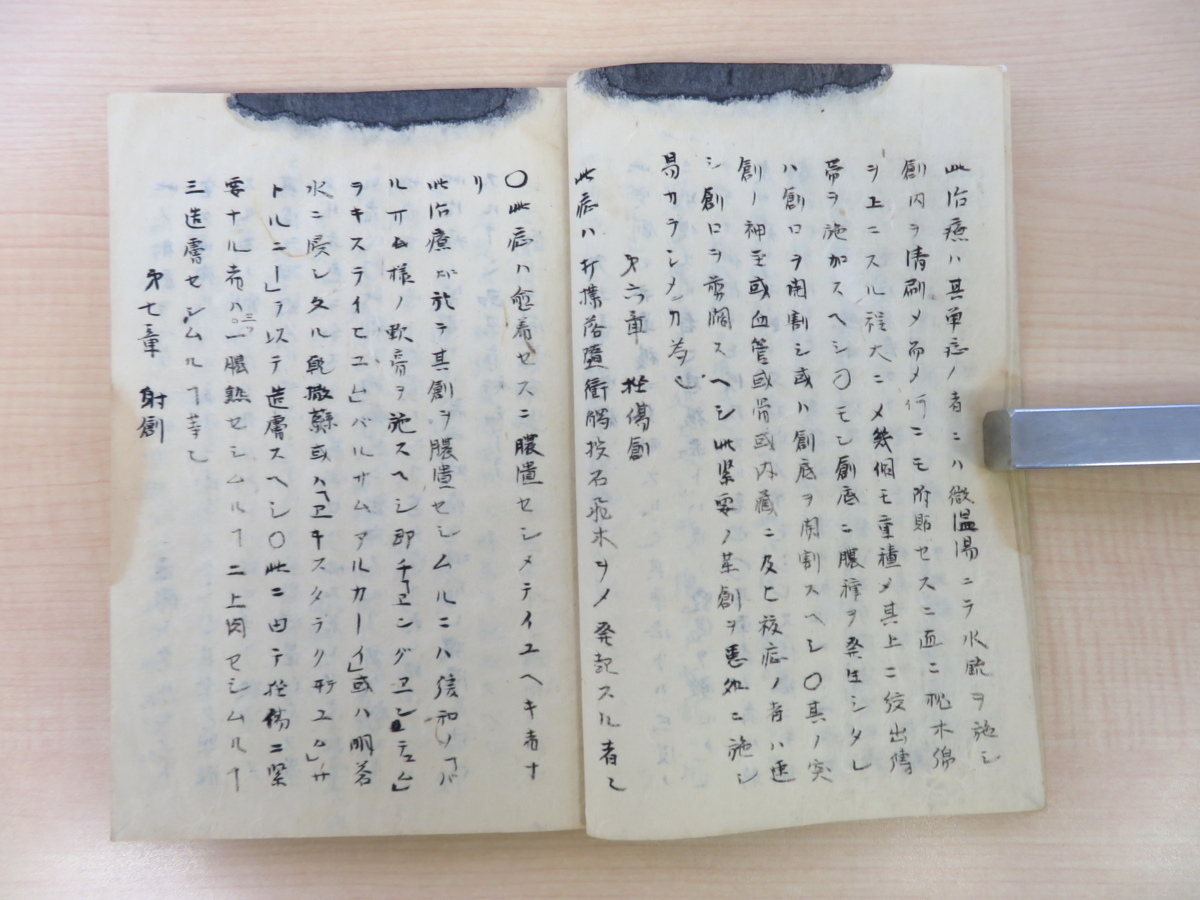 此治療ハ其単症ノ者ニハ微温湯ニテ水銃ヲ施シ
創内ヲ清刷メ而メ何ニモ附貼セスニ直ニ枇木綿
ヲ上ニスル程大ニメ幾個モ重積メ其上ニ絞出縛
帯ヲ施加スヘシ〇モシ創底ニ膿種ヲ発生シタレ
ハ創口ヲ開割シ或ハ創底ヲ開割スヘシ〇其ノ突
創ノ神至或血管或骨或内臓ニ及ヒ複症ノ者ハ速
シ創口ヲ闊スヘシ此緊要ノ革創ヲ悪処ニ施シ
易カラシメン为也
第六章 挫傷創
此症ハ打撲落墜衝觸投石飛木ヨメ発起スル者也
〇此症ハ愈着セスニ膿潰セシメテイユヘキ者ナ
リ
此治療ニ於テ其創ヲ膿潰セシムルニハ緩和ノ「バ
ルサム様ノ軟膏ヲ施スヘシ即チ
ラキステイヒユム」バルサムアルカーイ」或ハ明若
水ニ浸シタル乾撒糸或ハ
トルニー」ヲ以テ造膚スヘシ〇此ニ由テ挫傷ニ緊
要ナル者ハ三一膿熟セシムルヿ二上肉セシムルヿ
三造膚セシムルヿ等也
第七章 射創